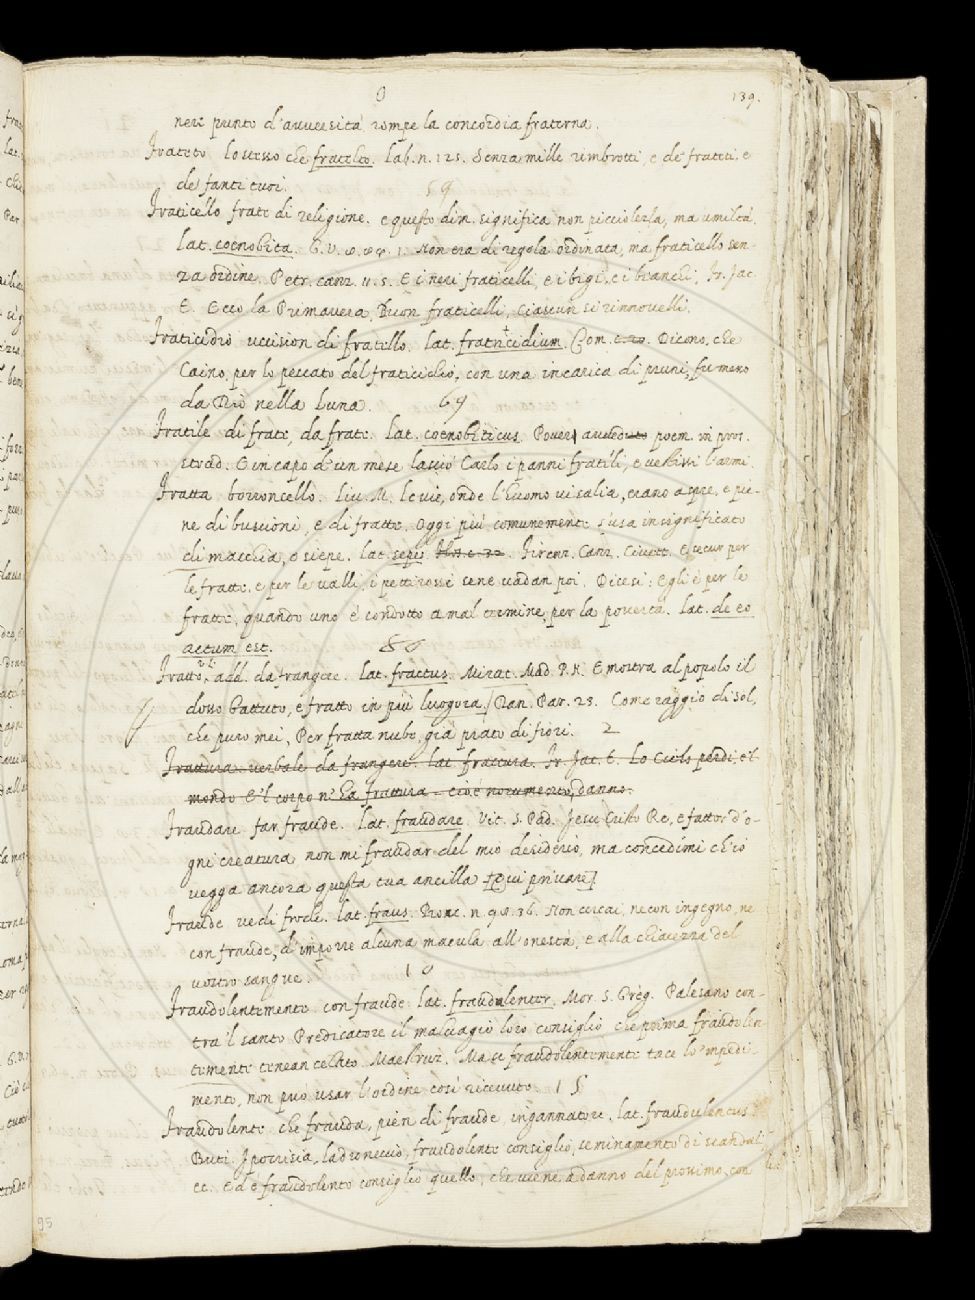 0 139.
neri punto d'auuersità rompe la concordia fraterna.
Frateto lo stesso che fratello. Lab. n. 125. Senza mille rimbrotti, e de frateti, e
de' fanti tuoi. 59
Fraticello frate di religione. e questo dim. significa non picciolezza, ma umiltà.
lat. coenobita. G. V. Non era di regola ordinata, ma fraticello sen-
za ordine. Petr. canz. 11. 5. E i neri fraticelli, e i bigi, e i bianchi, Fr. Jac.
E. Ecco la Primavera, Buon fraticelli, ciascun si rinnovelli.
Fraticidio uccision di fratello. lat. fratricidium. Com. Dicono, che
Caino, per lo peccato del fraticidio, con una incarica di pruni, fu meno
da Dio nella Luna. 69
Fratile di frate, da frate. lat. coenobiticus. Pouer aueduto poem. in pros.
strad. E in capo d'un mese lasciò Carlo i panni fratili, e uestissi l'armi
Fratta borroncello. Liv. M. le uie, onde l'huomo ui salia, erano aspre, e pie-
ne di buscioni, e di fratte. Oggi più comunemente s'usa in significato
di macchia, o siepe. lat. sepes. Firenz. Canz. Civett. E sicur per
le fratte, e per le ualli, i pettirossi sene uadan poi. Dicesi: Egli è per le
fratte, quando uno è condotto a mal termine, per la pouertà. lat. de eo
actum est. 86
Fratto, add. da frangere. lat. fractus. Mirac. Mad. P. N. E mostra al popolo il
dosso battuto, e fratto in più luogora, Dan. Par. 23. Come raggio di sol,
che puro mei, Per fratta nube, già prato di fiori. 2
Frattura uerbale da frangere. lat. fractura. Fr. Jac. t. Lo Cielo perdi, e'l
mondo E'l corpo n'ha frattura. cioè nocumento, danno.
Fraudare far fraude. lat. fraudare. Vit. S. Pad. Jesu Cristo Re, e fattor d'o-
gni creatura non mi fraudar del mio desiderio, ma concedimi ch'io
uegga ancora questa tua ancilla [qui priuare]
Fraude uedi frode. lat. fraus. Bocc. n. 98. 36. Non cercai, ne con ingegno, ne
con fraude, d'imporre alcuna macula all'onestà, e alla chiarezza del
uostro sangue. 10
Fraudolentemente con fraude. lat. fraudulenter. Mor. S. Greg. Palesano con-
tra'l santo Predicatore il maluagio loro consiglio che prima fraudolen-
temente tenean celato. Maestruz. Ma se fraudolentemente tace lo 'mpedi-
mento, non può usar l'ordine così riceuuto. 15
Fraudolente che frauda, pien di fraude, ingannatore. lat. fraudulentus.
Buti. Ipocrisia, ladroneccio, fraudolente consiglio, seminamento di scandali
ec. Ed è fraudolento consiglio quello, che uiene a danno del prossimo, con
95